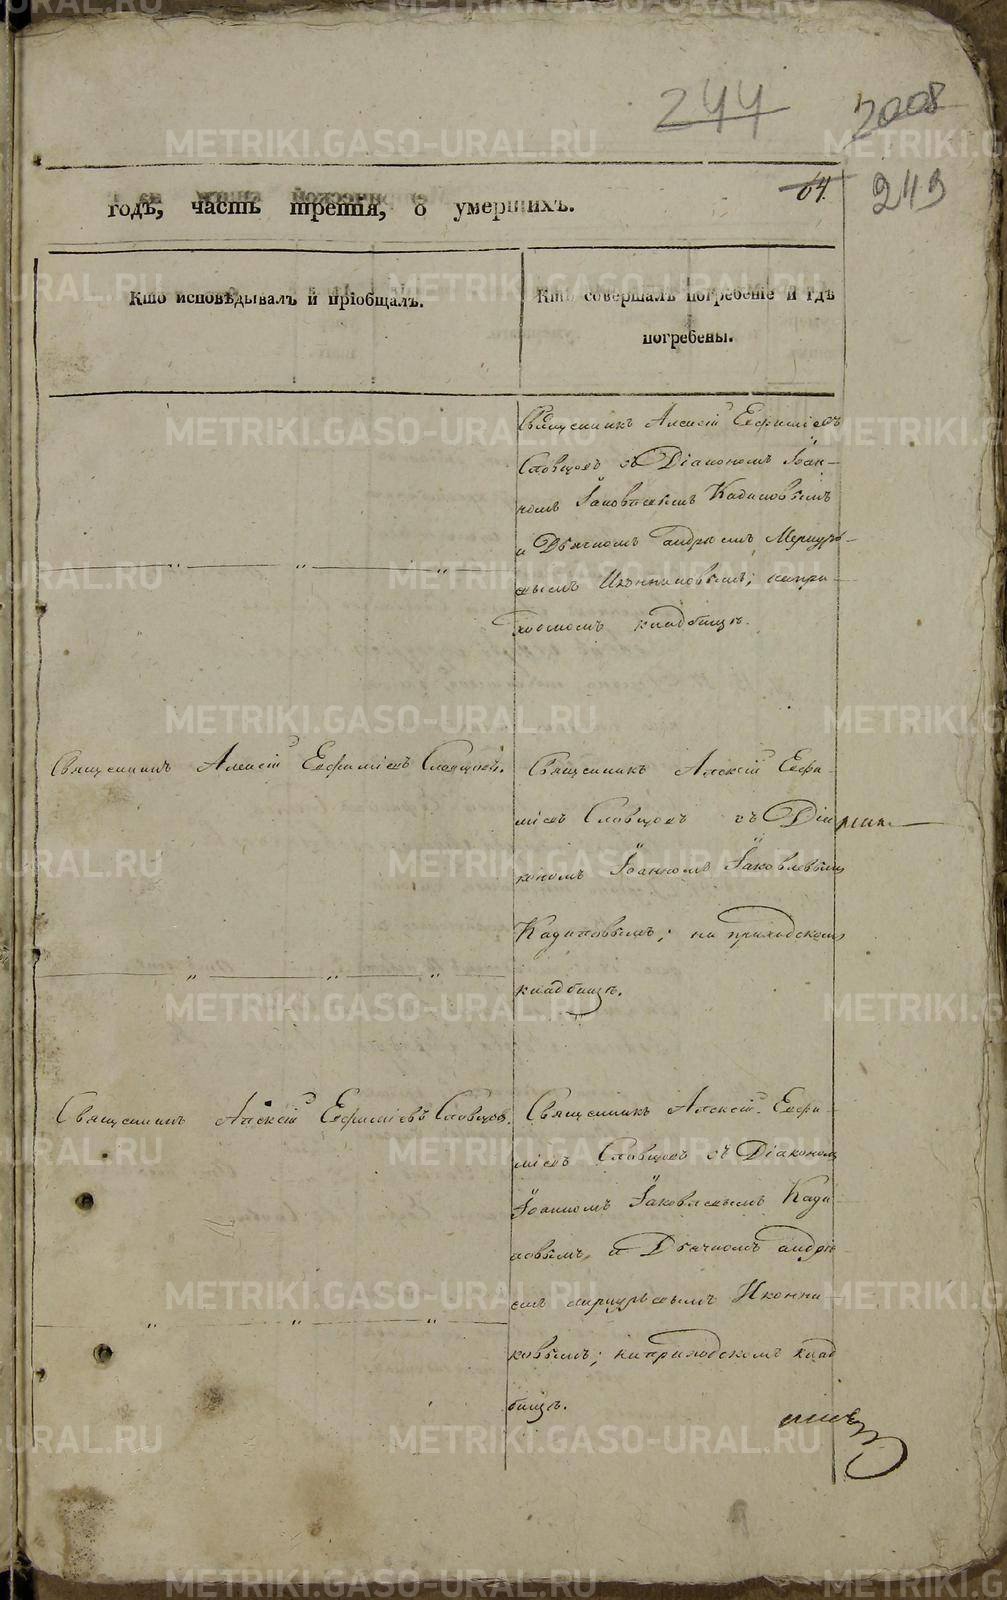 244
2008
64.
249
годъ, часть третія, о умершихъ.
Кто исповѣдывалъ и пріобщалъ.
Кто совершалъ погребеніе и гдѣ
погребены.
Священникъ Алексій Евфиміевъ
Словцовъ съ Діакономъ Іоан-
номъ Іаковлевымъ Кадиловымъ
и Дьячкомъ Андреемъ Меркурь-
евымъ Иконниковымъ; на при-
ходскомъ кладбищѣ.
Священникъ Алексій Евфиміевъ Словцовъ.
Священникъ Алексій Евфи-
міевъ Словцовъ съ Діа
кономъ Іоанномъ Іаковлевымъ
Кадиловымъ; на приходскомъ
кладбищѣ.
Священникъ Алексій Евфиміевъ Словцовъ.
Священникъ Алексій Евфи-
міевъ Словцовъ съ Діакономъ
Іоанномъ Іаковлевымъ Кади
ловымъ, и Дьячкомъ Андре
емъ Меркурьевымъ Иконни-
ковымъ; на приходскомъ клад
бищѣ.
METRIKI.GASO-URAL.RU